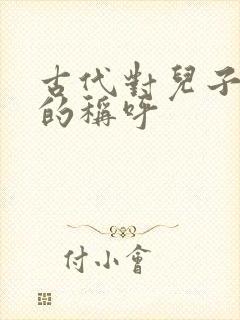 古代對兒子
的稱呼
付小會